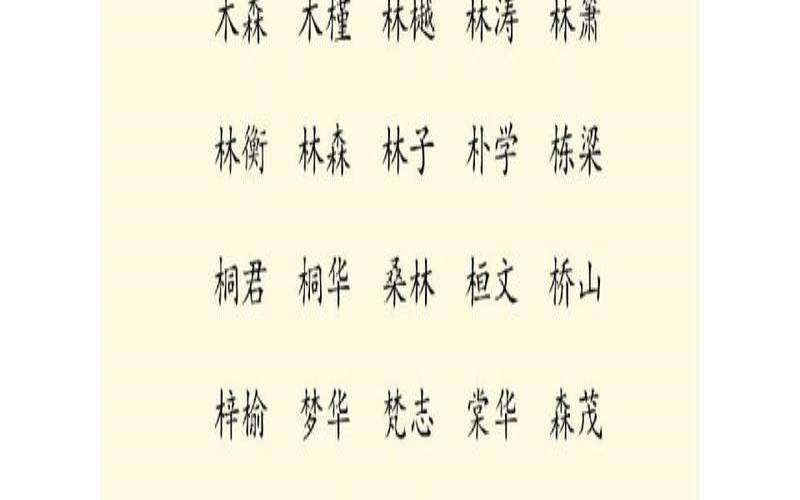 木森 木槿 林樾 林涛 林箫
林衡 林森 林子 朴学 栋梁
桐君 桐华 桑林 桓文 桥山
梓榆 梦华 梵志 棠华 森茂